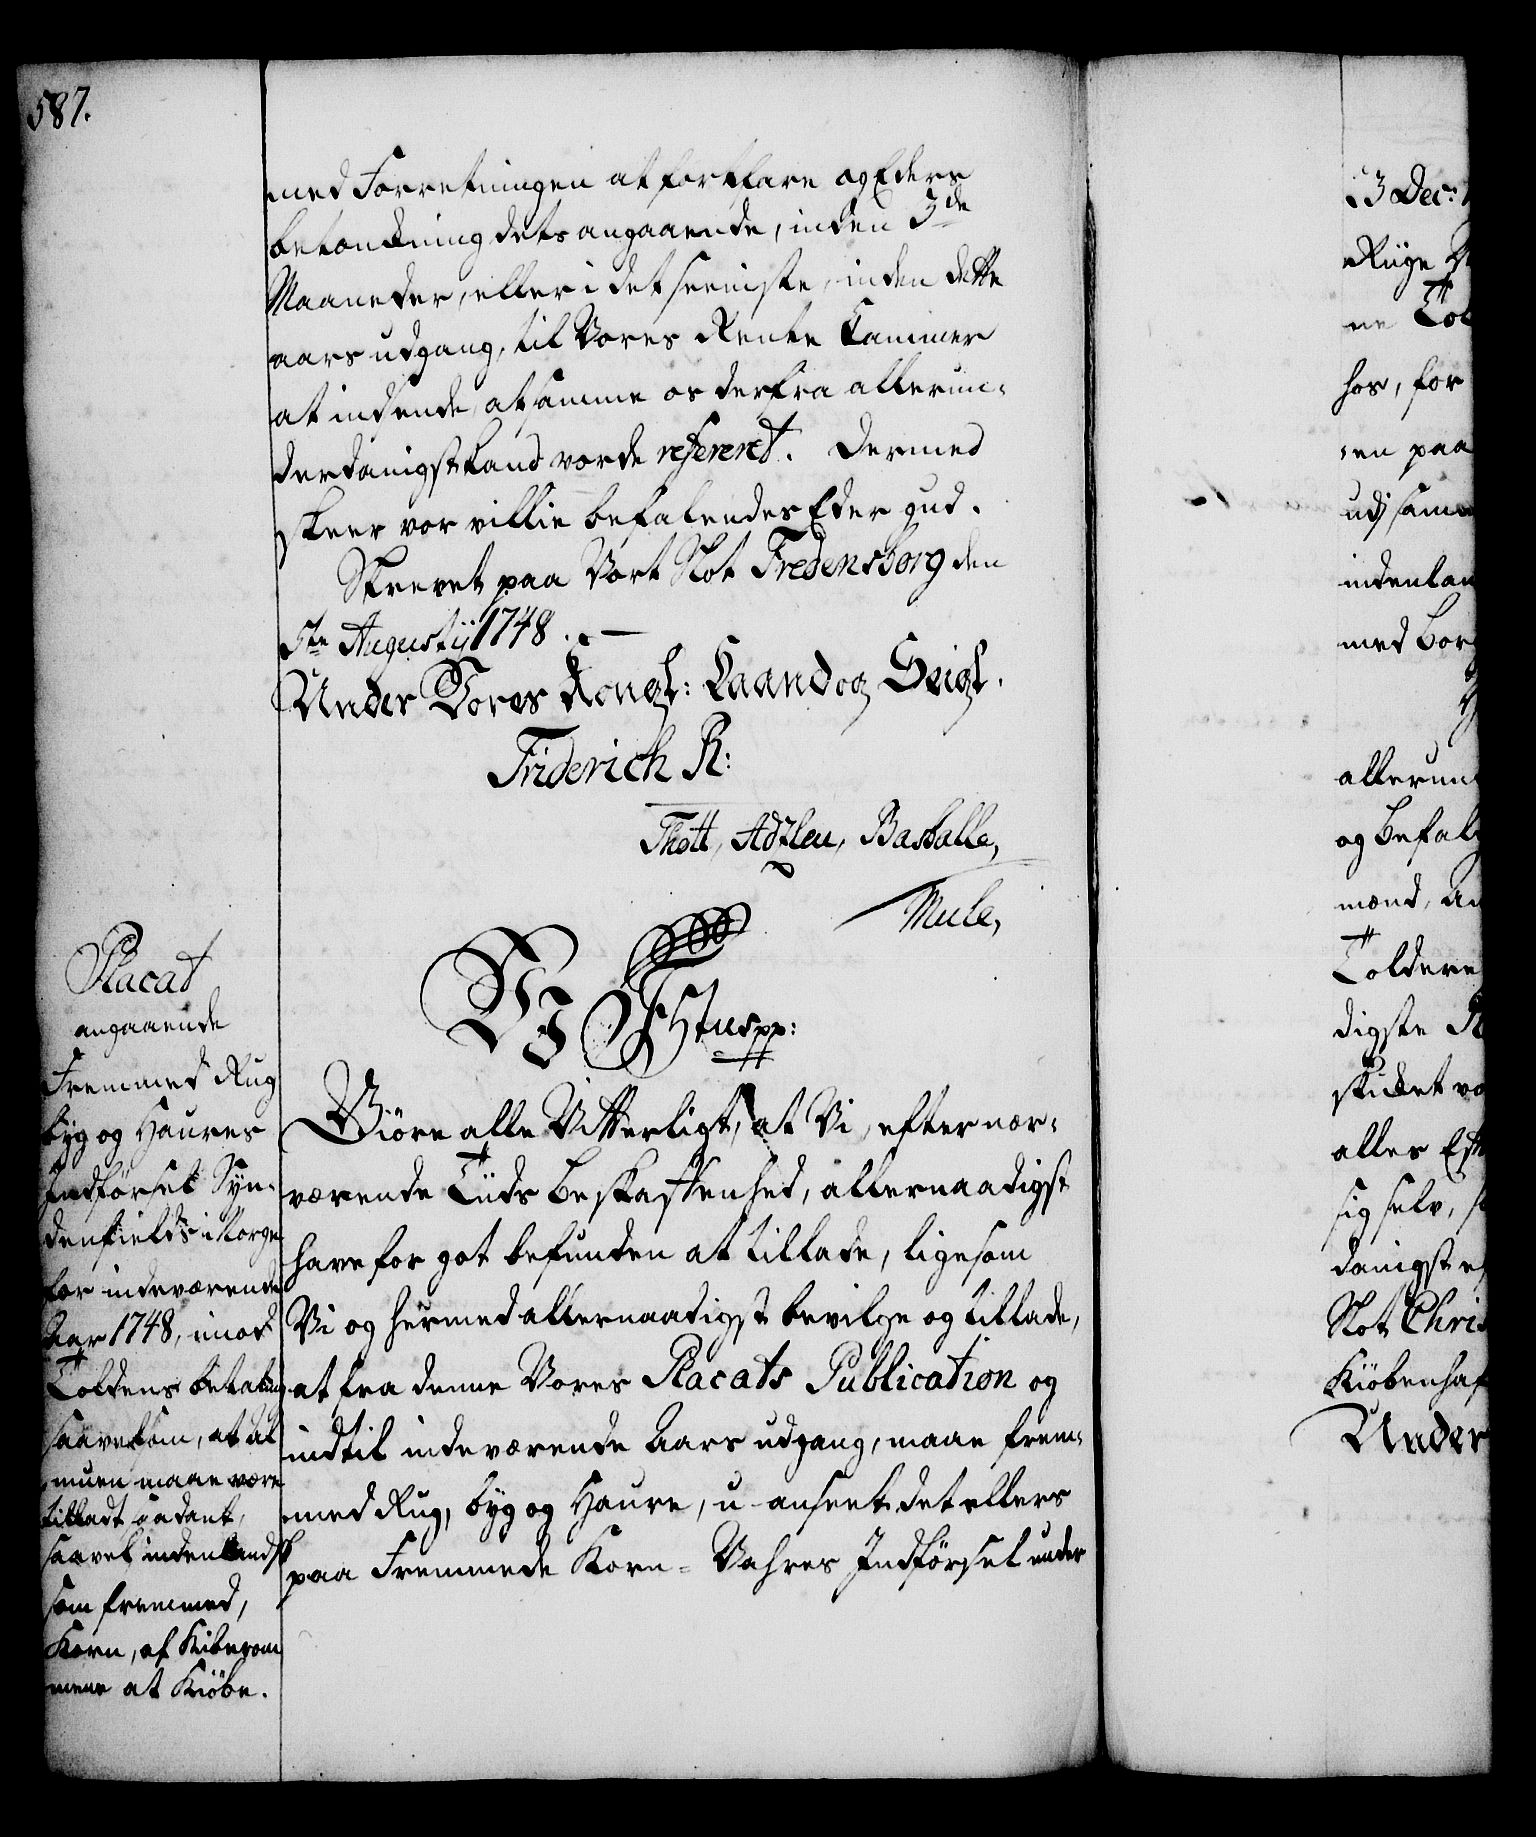 587.
med Forretningen at fortfare og Eders
betænckning dets angaaende, inden 3de
Maaneder, eller i det seeniste, inden dette
aars udgang, til Vores Rente Cammer
at indsende, at samme os derfra allerun-
derdanigst kand vorde refereret. Dermed
skeer vor villie befalendes Eder gud.
Skrevet paa Vort Slot Fredensborg den
5te Augustij 1748.
Under Vores Kongl: Haand og Seigl.
Friderich R:
Thott, Adzleu, Basballe,
Mule,
Placat
angaaende
Fremmet Rug
byg og Haures
Indførsel Syn-
denfields i Norge
for indeværende
Aar 1748, imod
Toldens betaling
saavelsom, at al
muen maae være
tilladt uadant,
saavel indenlandsk
som fremmed,
Korn, af Kiberom
mene at Kiøbe.
Vi FStuspp:
Giöre alle Vitterligt, at Vi, efter nær-
værende Tiids beskaffenhed, allernaadigst
have for got befunden at tillade, ligesom
Vi og hermed allernaadigst bevilge og tillade,
at fra denne Vores Placats Publication og
indtil indeværende Aars udgang, maae frem-
med Rug, byg og Haure, u-anseet det ellers
paa Fremmede Korn-Vahres Indførsel under
13 Dec:
Riige
ne Tol
hos, for
en paa
udj samm
indenlan
med bor
allerun
og befal
mænd, Am
Toldere
digste
skicket vo
alles Eft
sig selv, 
danigst ef
Slot Chris
Kiöbenhaf
Under